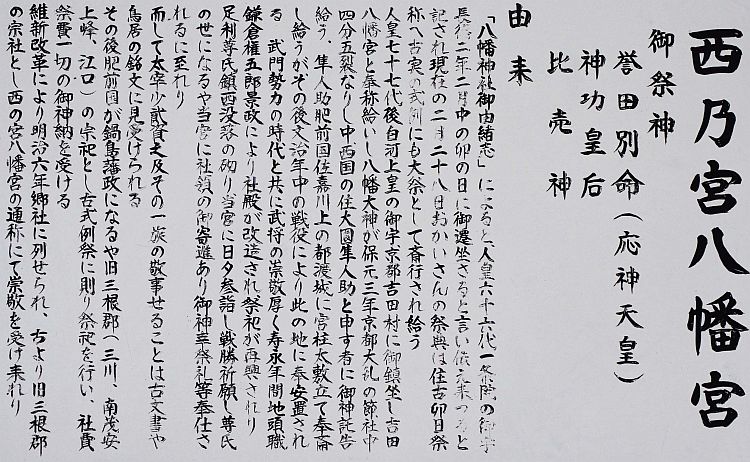 西乃宮八幡宮
御祭神
誉田別命(応神天皇)
神功皇后
比売神
由来
「八幡神社御由緒志」によると、人皇六十六代一条院の御宇
長徳二年二月中の卯の日に御遷坐さると言い伝え来つると
記され現在の二月二十八日おかいさんの祭典は往古卯日祭
称へ古実の式例にも大祭として斎行され給う
人皇七十七代後白河上皇の御宇京都吉田村に御鎮坐し吉田
八幡宮と奉称給いし八幡大神が保元三年京都大乱の節社中
四分五裂なりし中西国の住大圓隼人助と申す者に御神託告
給う、隼人助肥前国佐嘉川上の都渡城に宮柱太敷立て奉斎
し給うがその後文治年中の戦役により此の地に奉安置され
る 武門勢力の時代と共に武将の崇敬厚く寿永年間地頭職
鎌倉権五郎景政により社殿が改造され祭祀が再興されり
足利尊氏鎮西没落の砌り当宮に日夕参詣し戦勝祈願し尊氏
の世になるや当宮に社領の御寄進あり御神幸祭礼等奉仕さ
れるに至れり
而して太宰少貳資之及その一族の敬事せることは古文書や
鳥居の銘文に見受けられる
その後肥前国が鍋島藩政になるや旧三根郡(三川、南茂安
上峰、江口)の宗祀とし古式例祭に則り祭祀を行い、社費
祭費一切の御神納を受ける
維新改革により明治六年郷社に列せられ、古より旧三根郡
の宗社とし西の宮八幡宮の通称にて崇敬を受け来れり